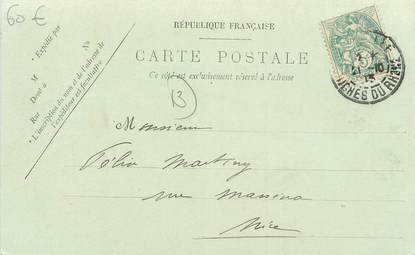 60 €
RÉPUBLIQUE FRANÇAISE
CARTE POSTALE
Ce côté est exclusivement réservé à l'adresse
• Expédié par
M
Demt à
Rue Nº
• L'inscription du nom et de l'adresse de
l'expéditeur est facultative
BOUCHES DU RHONE
13
Monsieur
Félix Martiny
rue Massena
Nice